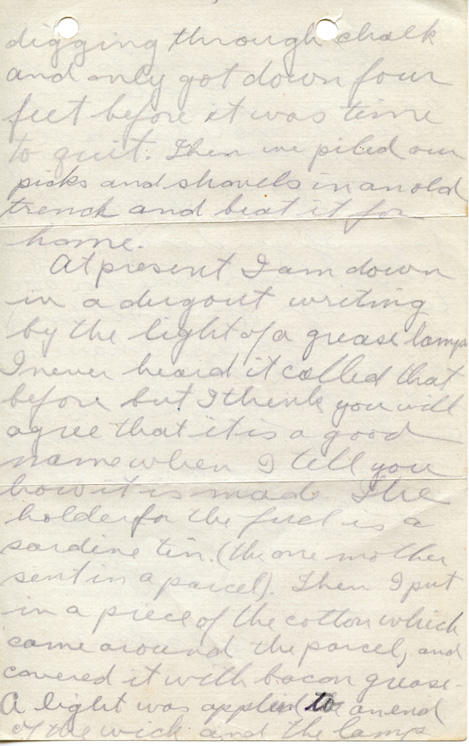 digging through chalk
and only got down four
feet before it was time
to quit. Then we piled our
picks and shovels in an old
trench and beat it for
home.
At present I am down
in a dugout writing
by the light of a grease lamp
I never heard it called that
before but I think you will
agree that it is a good
name when I tell you
how it is made. The
holder for the fuel is a
sardine tin. (the one mother
sent in a parcel). Then I put
in a piece of the cotton which
came around the parcel, and
covered it with bacon grease.
A light was applied to an end
of the wick and the lamp